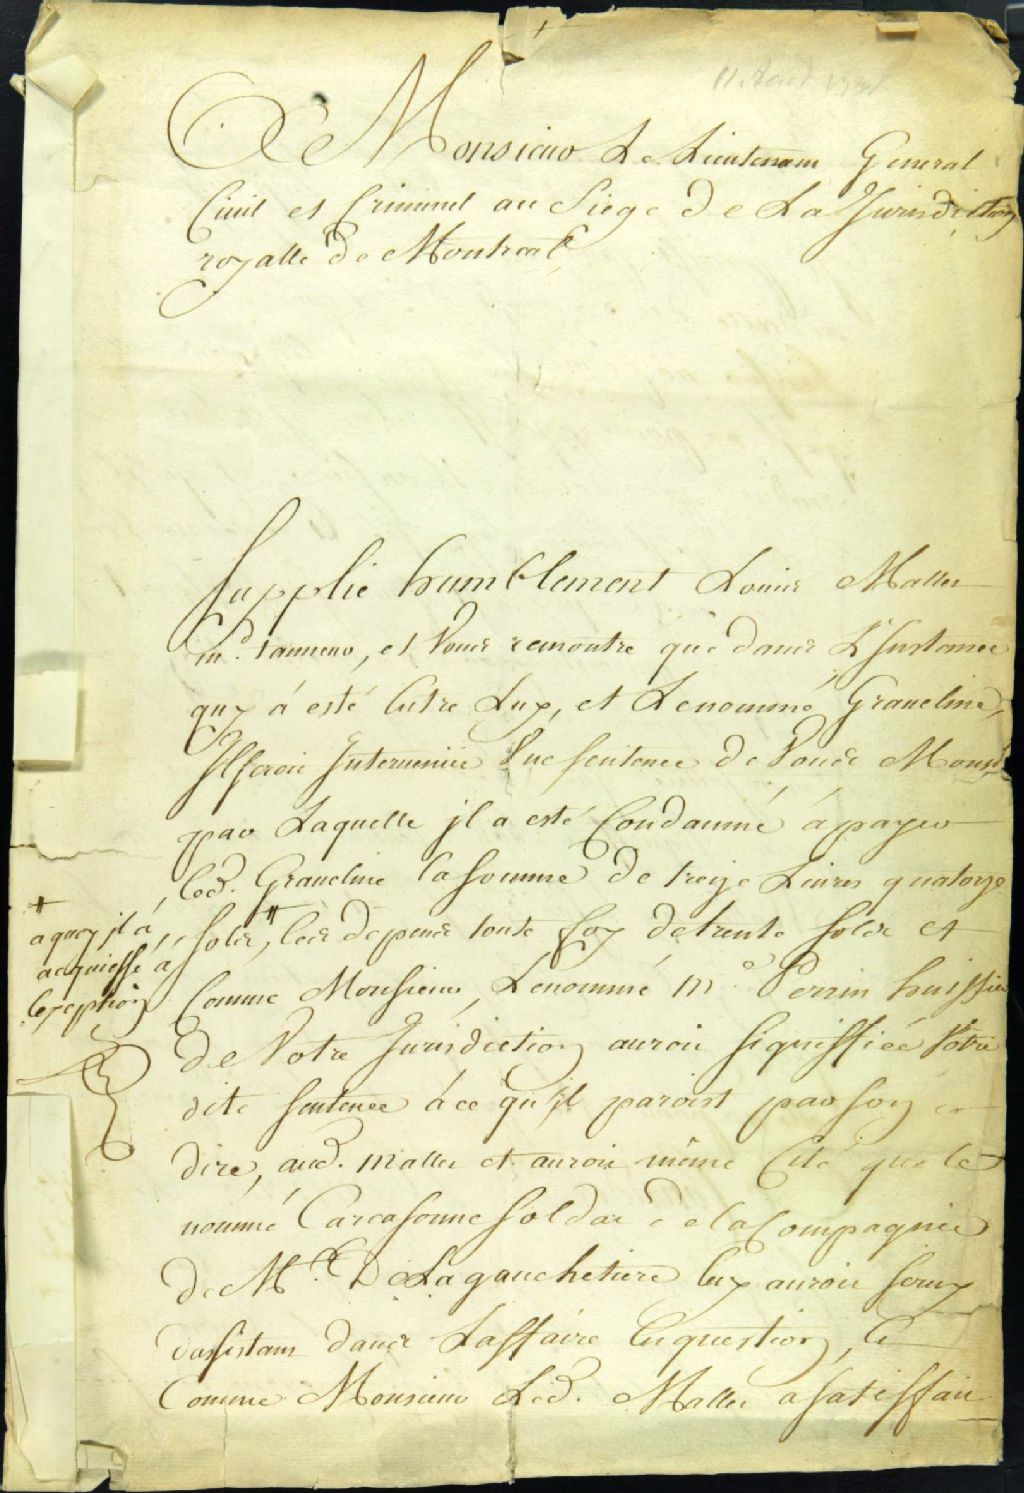 11 Aout
A Monsieur Le Lieutenant General
Ciuil et Criminel au Siege de La Jurisdiction
royalle de Montreal
Supplie humblement Louis Mallet
md. tanneur, et Vous remontre que dans L'Instance
quy á esté Entre Luy, et Lenommé Graueline,
Il seroit Interuenüe Vne sentence de Vous Monsr
par Laquelle jl a esté Condamné á payer
aud. Graueline la somme de treize Liures quatorze
# sols, # les depens toute foy de trente sols et
# aquoy jl á
acquiessé a
lexeption
Comme Monsieur, Lenommé me. Perrin huissier
de Votre Jurisdiction auroit signiffiée Votre
dite sentence á ce qu'jl paroist par son
dire, aud. Mallet et auroit même Cité que le
nommé Carcasonne soldat de la Compagnie
de Mr. De Lagauchetiere luy auroit seruy
dassistant dans Laffaire En question, Et
Comme Monsieur Led. Mallet a satisffait